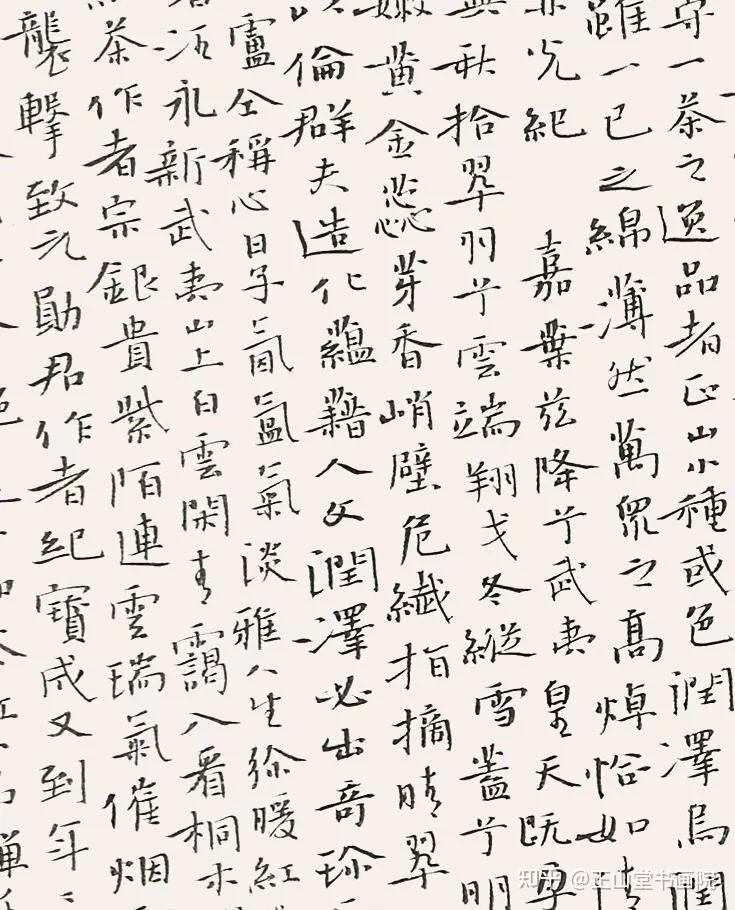 守一茶之逸品者正山小種或色潤澤烏潤
雖一己之綿薄然萬眾之高焯恰如
光紀 嘉葉兹降兮武夷皇天既孕
秋拾翠羽兮雲端翔戈冬縱雪蓋兮明
嫩黄金蕊芽香峭壁危纖指摘晴翠
倫群夫造化蘊藉人文潤澤必出奇珍
盧仝稱心日子氤氳氣淡雅人生徐暖紅
永新武夷山上白雲閑青靄入看桐木
茶作者宗銀貴紫陌連雲瑞氣催烟
襲擊致元勛君作者紀寶成又到年
知乎 @正山堂书画院